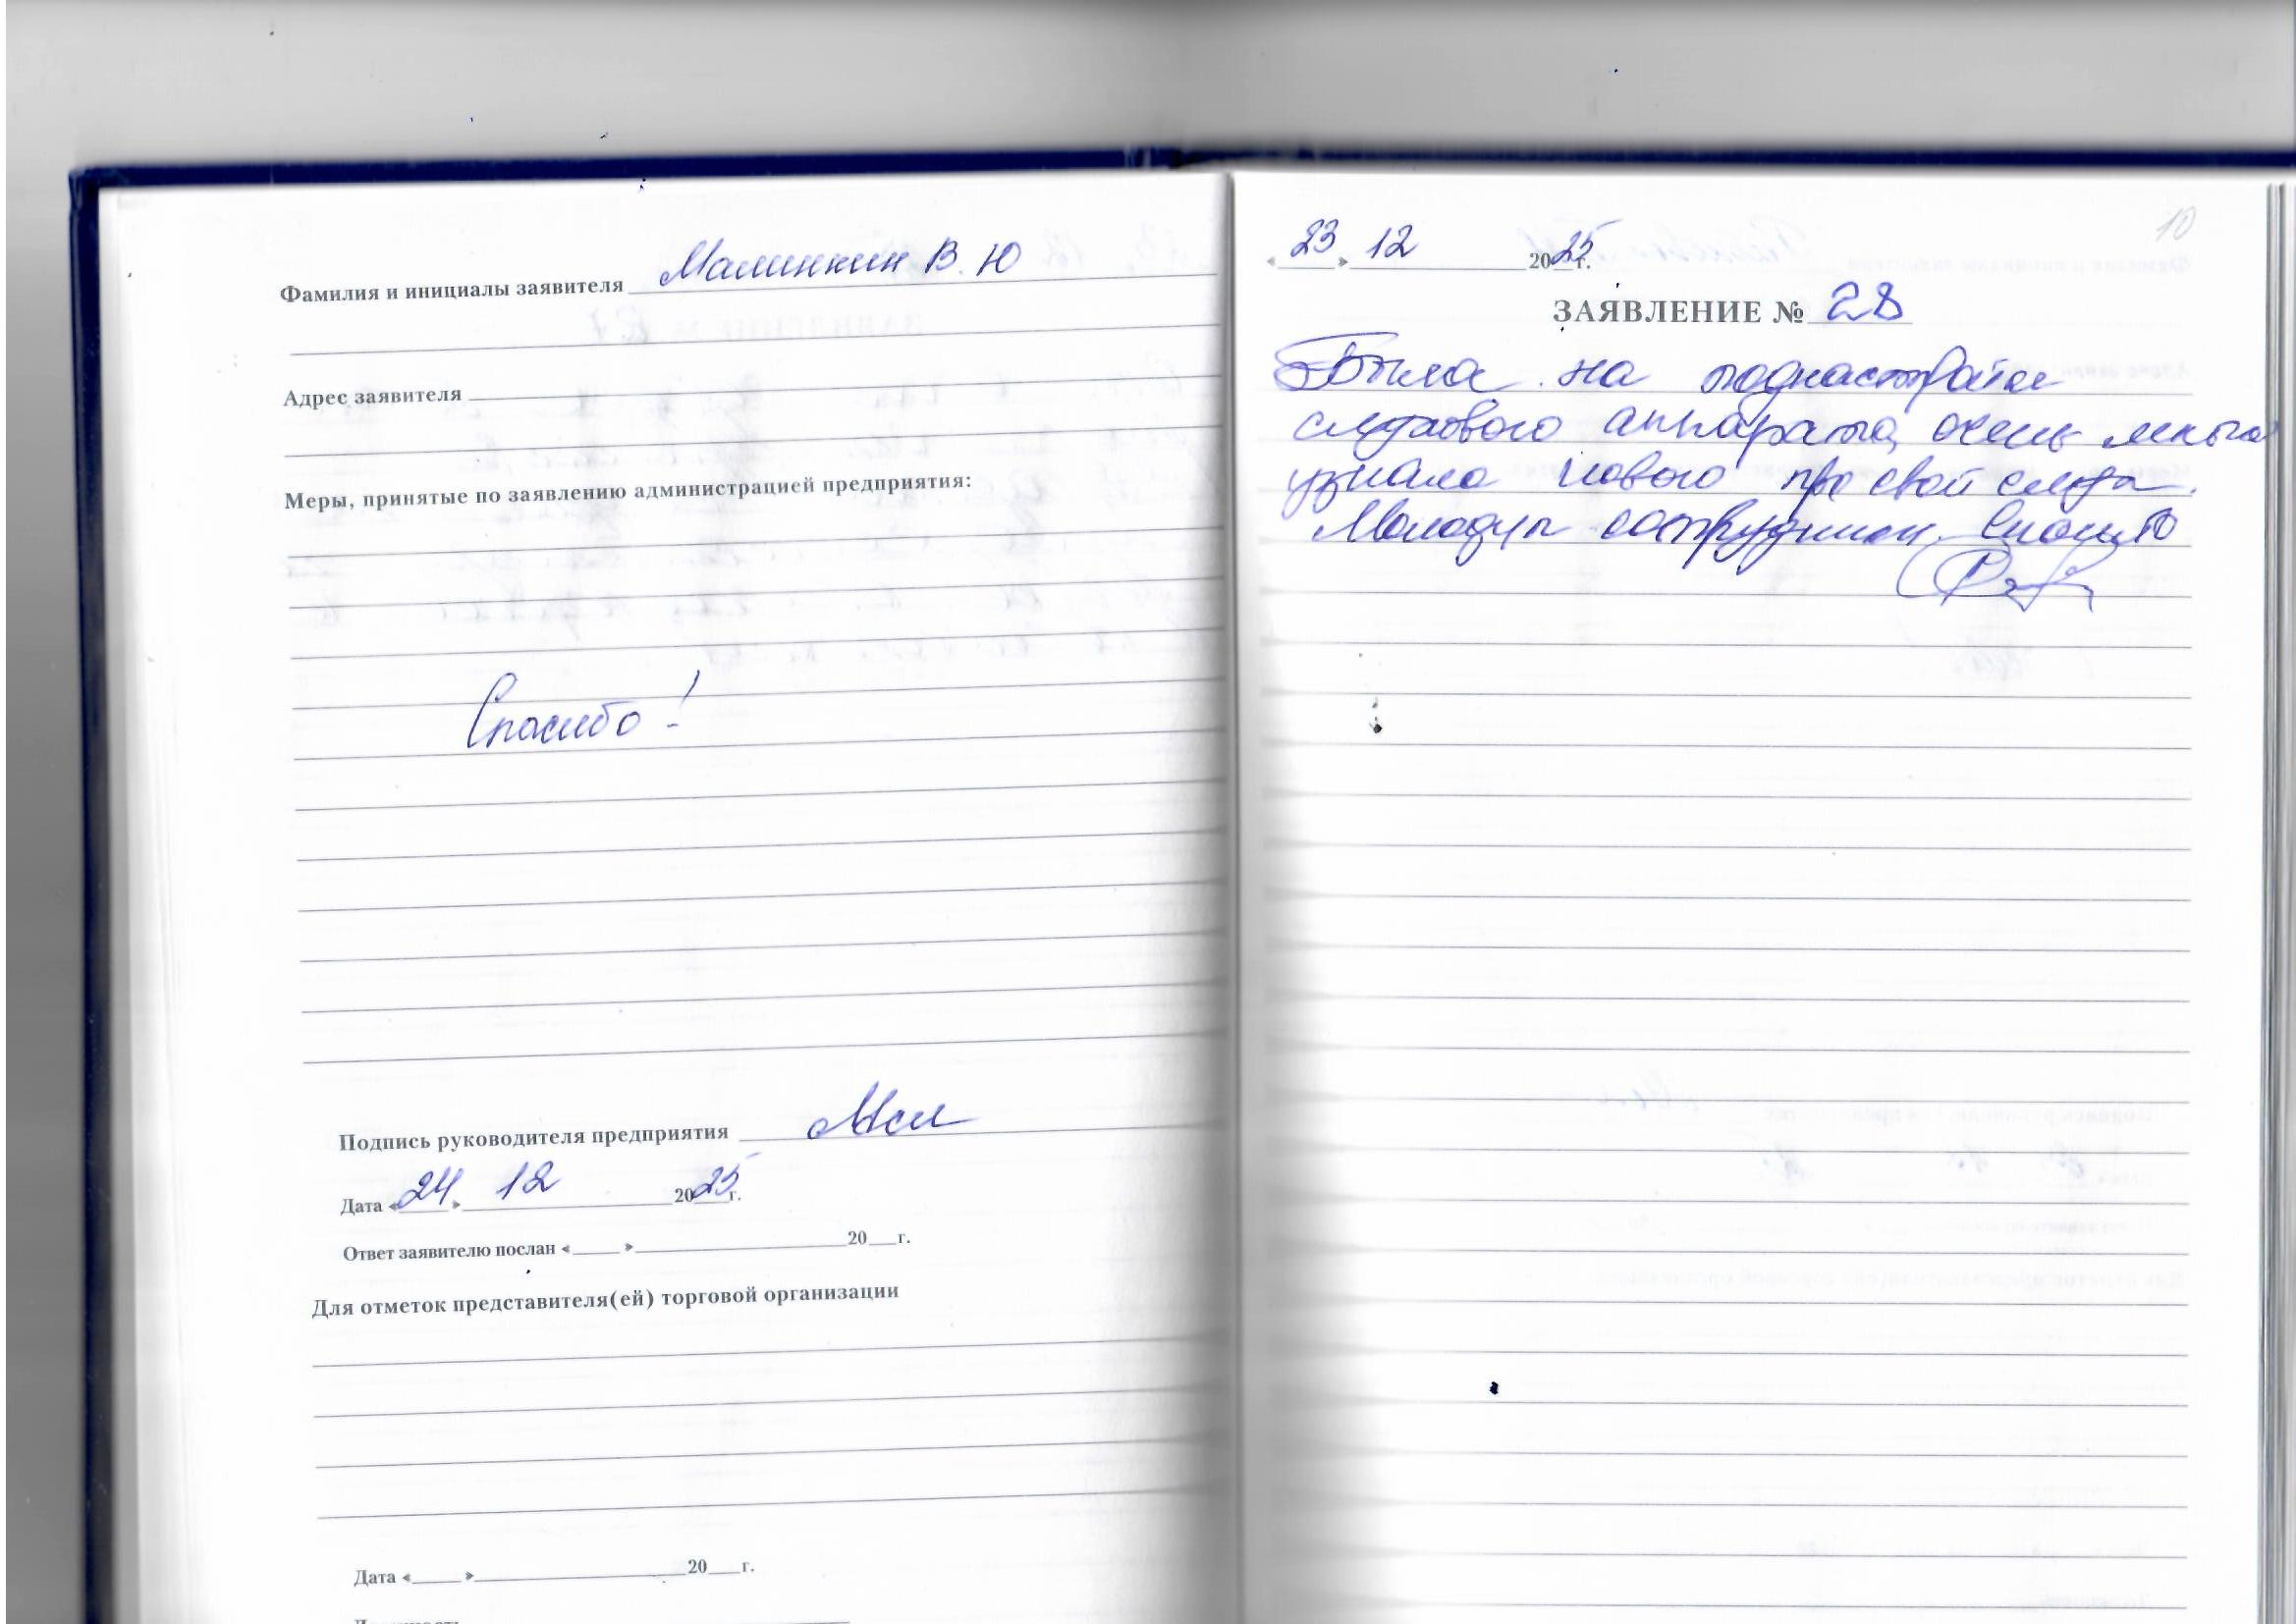 Фамилия и инициалы заявителя Малинкин В. Ю
Адрес заявителя
Меры, принятые по заявлению администрацией предприятия:
Спасибо!
Подпись руководителя предприятия
Дата «24» 12 2025г.
Ответ заявителю послан «    »            20    г.
Для отметок представителя(ей) торговой организации
Дата «    »            20    г.
10
«23» 12 2025г.
ЗАЯВЛЕНИЕ № 28
Была на поднастройке
слухового аппарата, очень много
узнала нового про свой слух.
Молодцы сотрудники.